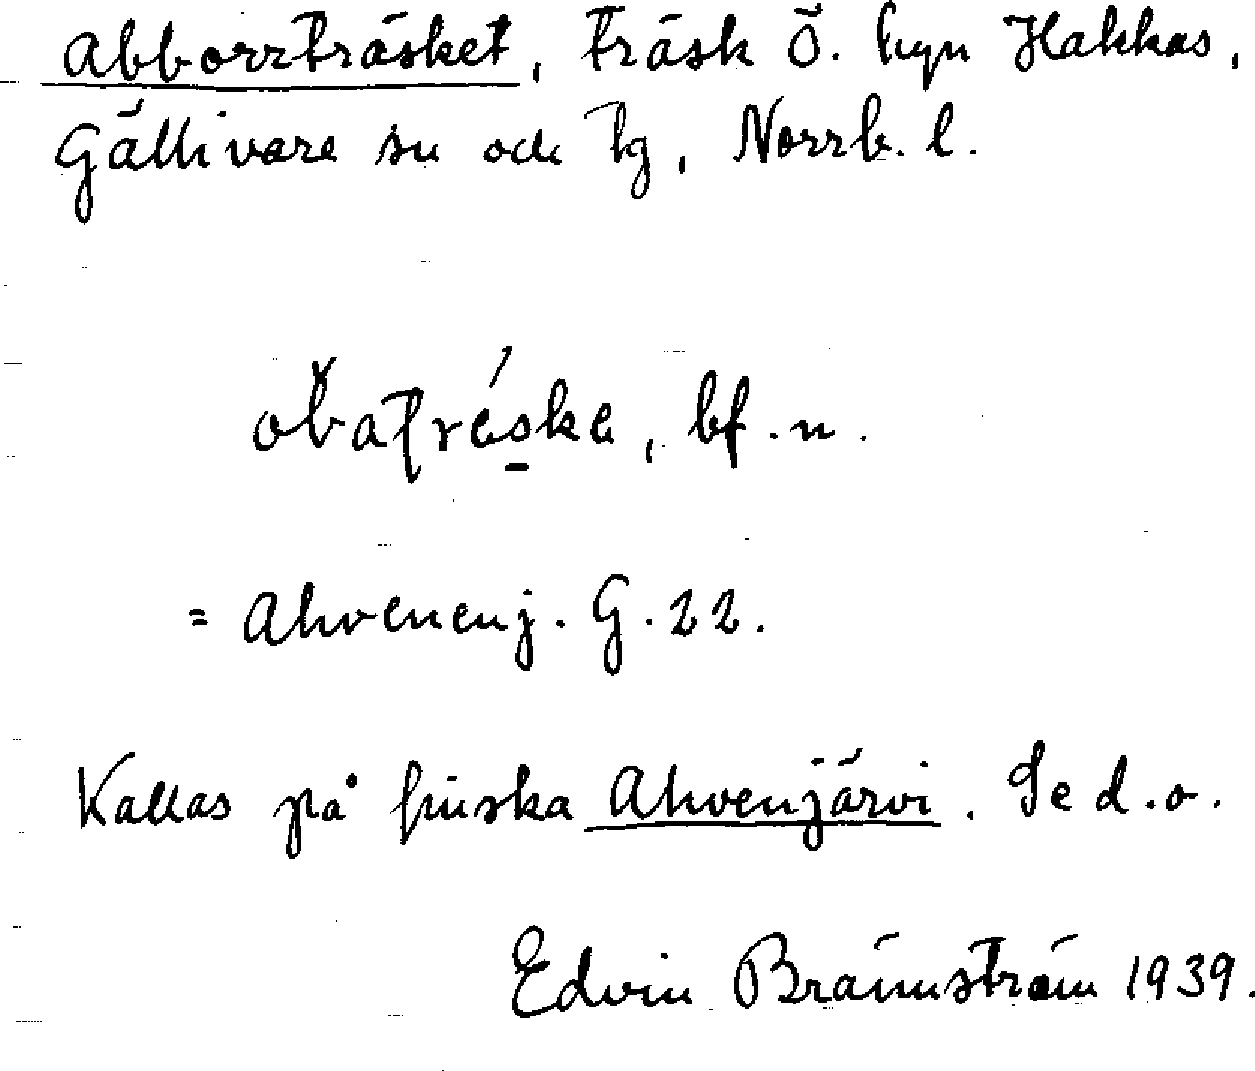 Abborrträsket, träsk Ö. byn Hakkas,
Gällivare sn och tg, Norrb. l.
= Ahvenenj. G. 22.
Kallas på finska Ahvenjärvi. Se d.o.
Edvin Brännström 1939.